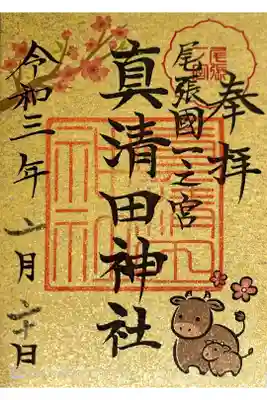 奉拝
尾張國一之宮
真清田神社
令和三年二月二十日